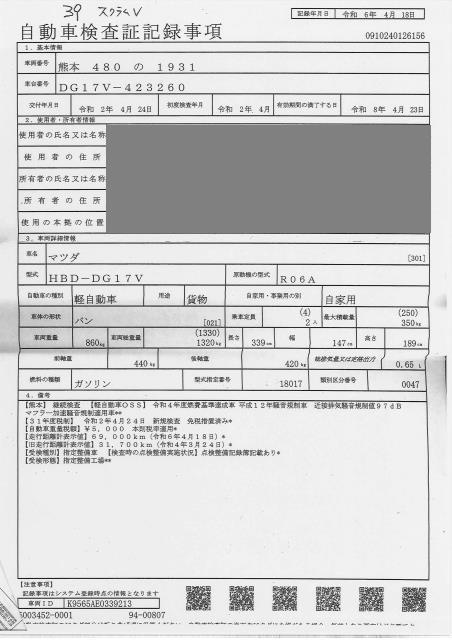 39 スクラムV
記録年月日 令和 6年 4月 18日
自動車検査証記録事項
0910240126156
1. 基本情報
車両番号 熊本 480 の 1931
車台番号 DG17V-423260
交付年月日 令和 2年 4月 24日 初度検査年月 令和 2年 4月 有効期間の満了する日 令和 8年 4月 23日
2. 使用者・所有者情報
使用者の氏名又は名称
使用者の住所
所有者の氏名又は名称
所有者の住所
使用の本拠の位置
3. 車両詳細情報
車名 マツダ [301]
型式 HBD-DG17V 原動機の型式 R06A
自動車の種別 軽自動車 用途 貨物 自家用・事業用の別 自家用
車体の形状 バン [021] 乗車定員 (4) 2人 最大積載量 (250) 350kg
車両重量 860kg 車両総重量 (1330) 1320kg 長さ 339cm 幅 147cm 高さ 189cm
前軸重 440kg 後軸重 420kg 総排気量又は定格出力 0.65 L
燃料の種類 ガソリン 型式指定番号 18017 類別区分番号 0047
4. 備考
【熊本】 継続検査 【軽自動車OSS】 令和4年度燃費基準達成車 平成12年騒音規制車 近接排気騒音規制値97dB
マフラー加速騒音規制適用車**
【31年度税制】 令和2年4月24日 新規検査 免税措置済み*
【自動車重量税額】 ¥5,000 本則税率適用*
【走行距離計表示値】 69,000km(令和6年4月18日)*
【旧走行距離計表示値】 31,700km(令和4年3月24日)*
【受検種別】指定整備車 【検査時の点検整備実施状況】点検整備記録簿記載あり*
【受検形態】指定整備工場**
【注意事項】
記録事項はシステム登録時点の情報となります
車両ID K9565AE0339213
5003452-0001 94-00807